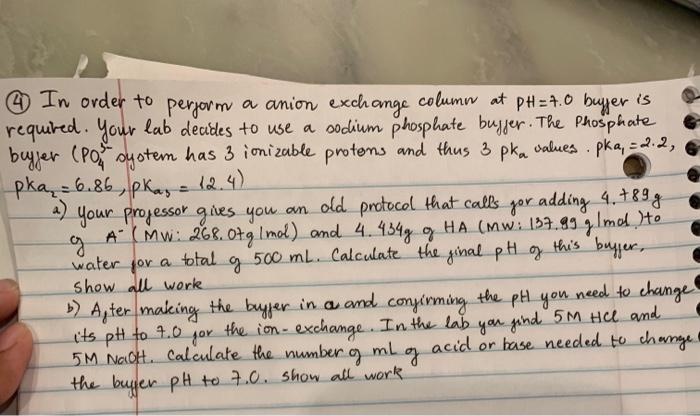 ④ In order to perform a anion exchange column at pH=7.0 buffer is
required. Your lab decides to use a sodium phosphate buffer. The Phosphate
buffer (PO₄³⁻ system has 3 ionizable protons and thus 3 pka values. pka₁=2.2,
pka₂=6.86, pKa₃ = 12.4)
a) your professor gives you an old protocol that calls for adding 4.789g
of A⁻ (MW: 268.07g/mol) and 4.434g of HA (MW: 137.99 g/mol) to
water for a total of 500 mL. Calculate the final pH of this buffer,
show all work
b) After making the buffer in a and confirming the pH you need to change
its pH to 7.0 for the ion-exchange. In the lab you find 5M HCl and
5M NaOH. Calculate the number of mL of acid or base needed to change
the buffer pH to 7.0. Show all work